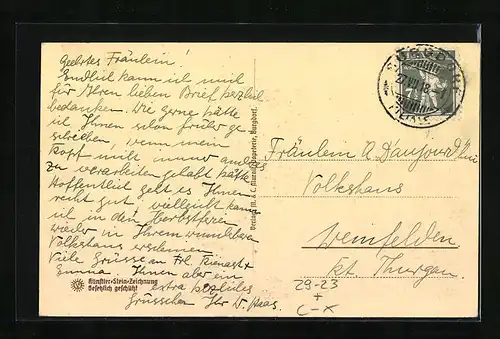 Geehrtes Fräulein!
Endlich kann ich mich
für Ihren lieben Brief herzlich
bedanken. Wie gerne hätte
ich Ihnen schon früher ge-
schrieben, wenn mein
Kopf nicht anders
zu verarbeiten gehabt hätte
Hoffentlich geht es Ihnen
recht gut, vielleicht kann
ich in den Herbstferien
wieder in Ihrem wunderbaren
Volkshaus erscheinen
Viele Grüsse an Frl. Kienast &
Emma. Ihnen aber ein
extra herzliches
Grüsschen Ihr W. Haas.
Künstler-Stein-Zeichnung
Gesetzlich geschützt
BURGDORF
Fräulein A. Danjourd
Volkshaus
Weinfelden
Kt. Thurgau.
29-23
+
C-X